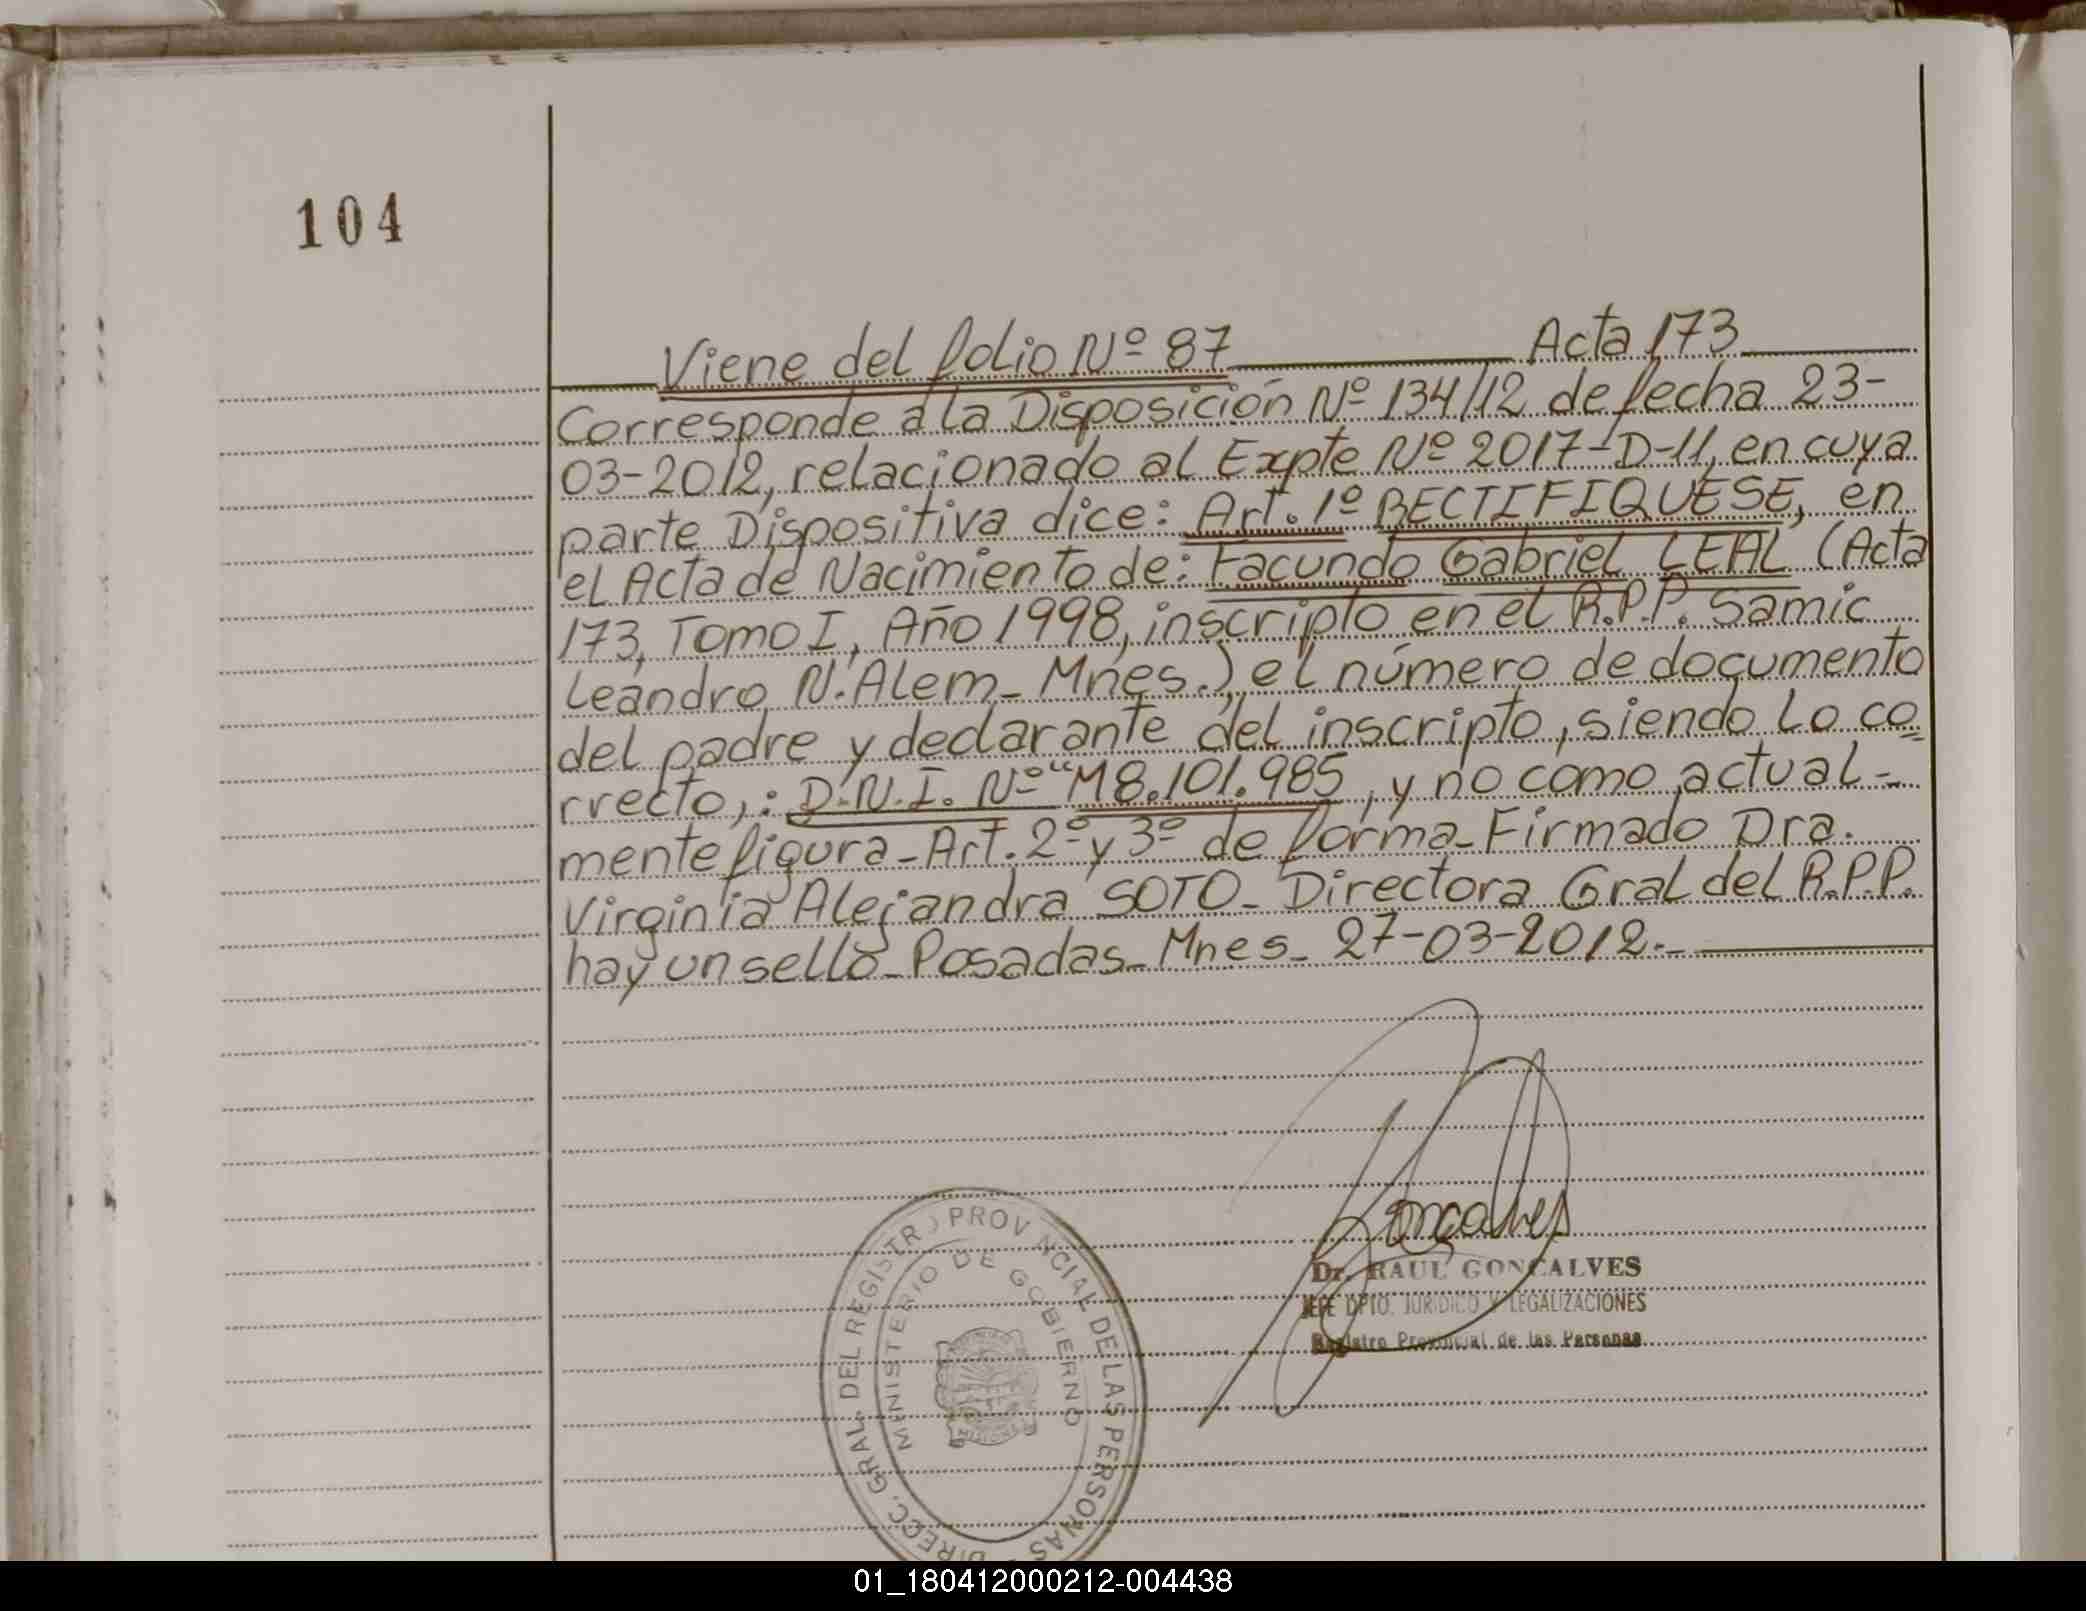 104
Viene del folio Nº 87 Acta 173
Corresponde a la Disposición Nº 134/12 de fecha 23-
03-2012, relacionado al Expte Nº 2017-D-11, en cuya
parte Dispositiva dice: Art. 1º RECTIFIQUESE, en
el Acta de Nacimiento de: Facundo Gabriel LEAL (Acta
173, Tomo I, Año 1998, inscripto en el R.P.P. Samic
Leandro N. Alem_ Mnes.), el número de documento
del padre y declarante del inscripto, siendo lo co
rrecto,: D.N.I. Nº "M8.101.985, y no como actual-
mente figura_Art. 2º y 3º de forma_Firmado Dra.
Virginia Alejandra SOTO_ Directora Gral del R.P.P.
hay un sello_Posadas_Mnes_ 27-03-2012._
Gonçalves
Dr. RAUL GONCALVES
JEFE DPTO. JURIDICO Y LEGALIZACIONES
Registro Provincial de las Personas
DIRECC. GRAL. DEL REGISTRO PROVINCIAL DE LAS PERSONAS
MINISTERIO DE GOBIERNO
MISIONES
01_180412000212-004438